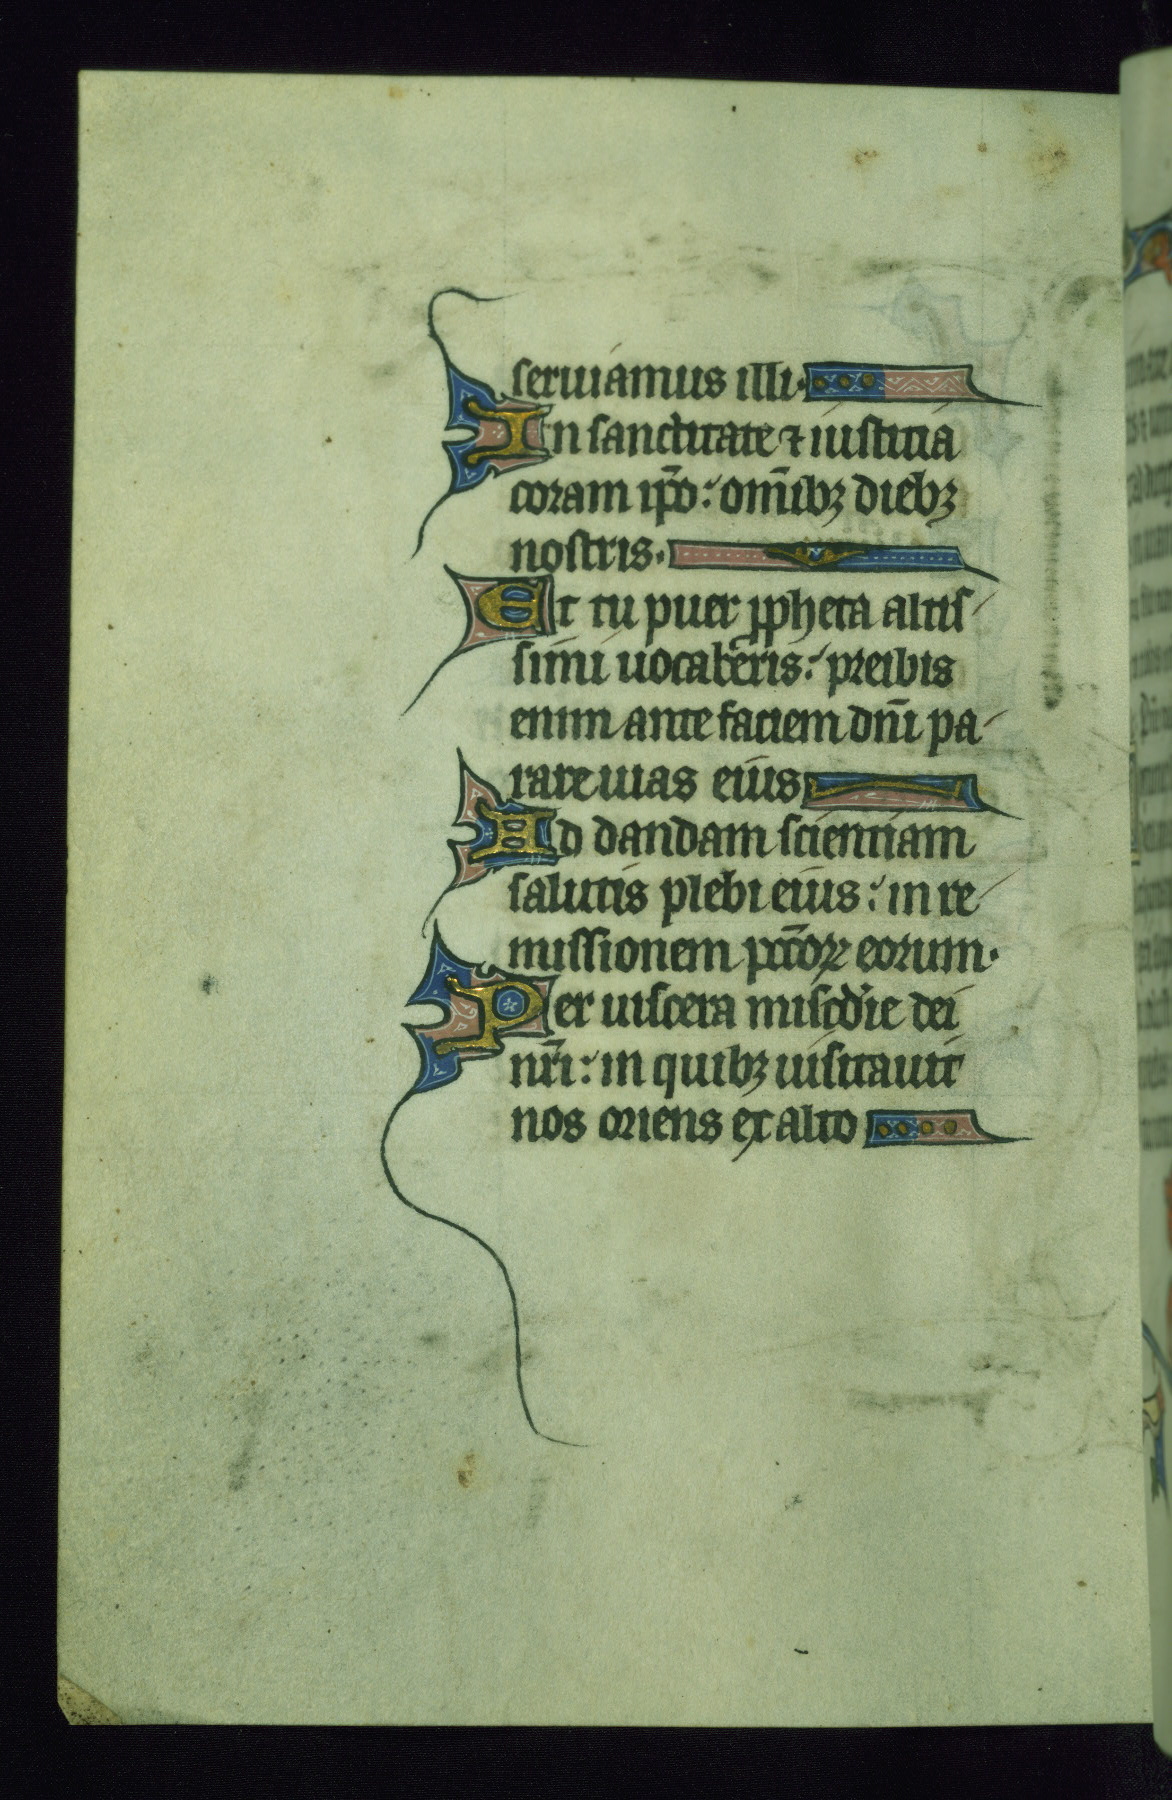 seruiamus illi.
In sanctitate ⁊ iusticia
coram ip̄o: om̄ibꝫ diebꝫ
nostris.
Et tu puer ꝓpheta altis
simi uocaberis: preibis
enim ante faciem dn̄i pa
rare uias eius
Ad dandam scientiam
salutis plebi eius: in re
missionem pccōꝝ eorum.
Per uiscera misc̄die dei
nr̄i: in quibꝫ uisitauit
nos oriens ex alto